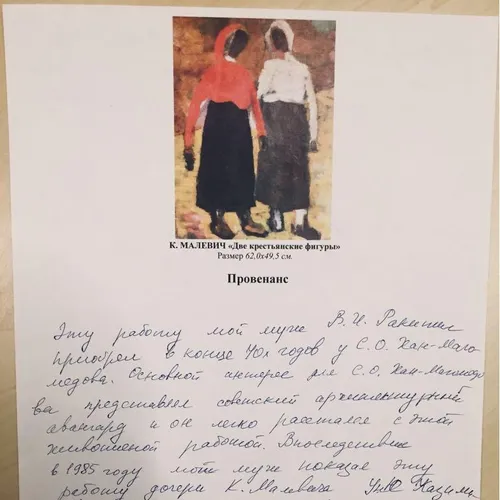 К. МАЛЕВИЧ «Две крестьянские фигуры»
Размер 62,0x49,5 см.
Провенанс
Эту работу мой муж В.И. Ракитин
приобрел в конце 70х годов у С.О. Хан-Маго
медова. Основной интерес для С.О. Хан-Магомедо
ва представлял советский архитектурный
авангард и он легко расстался с этой
живописной работой. Впоследствии
в 1985 году мой муж показал эту
работу дочери К. Малевича